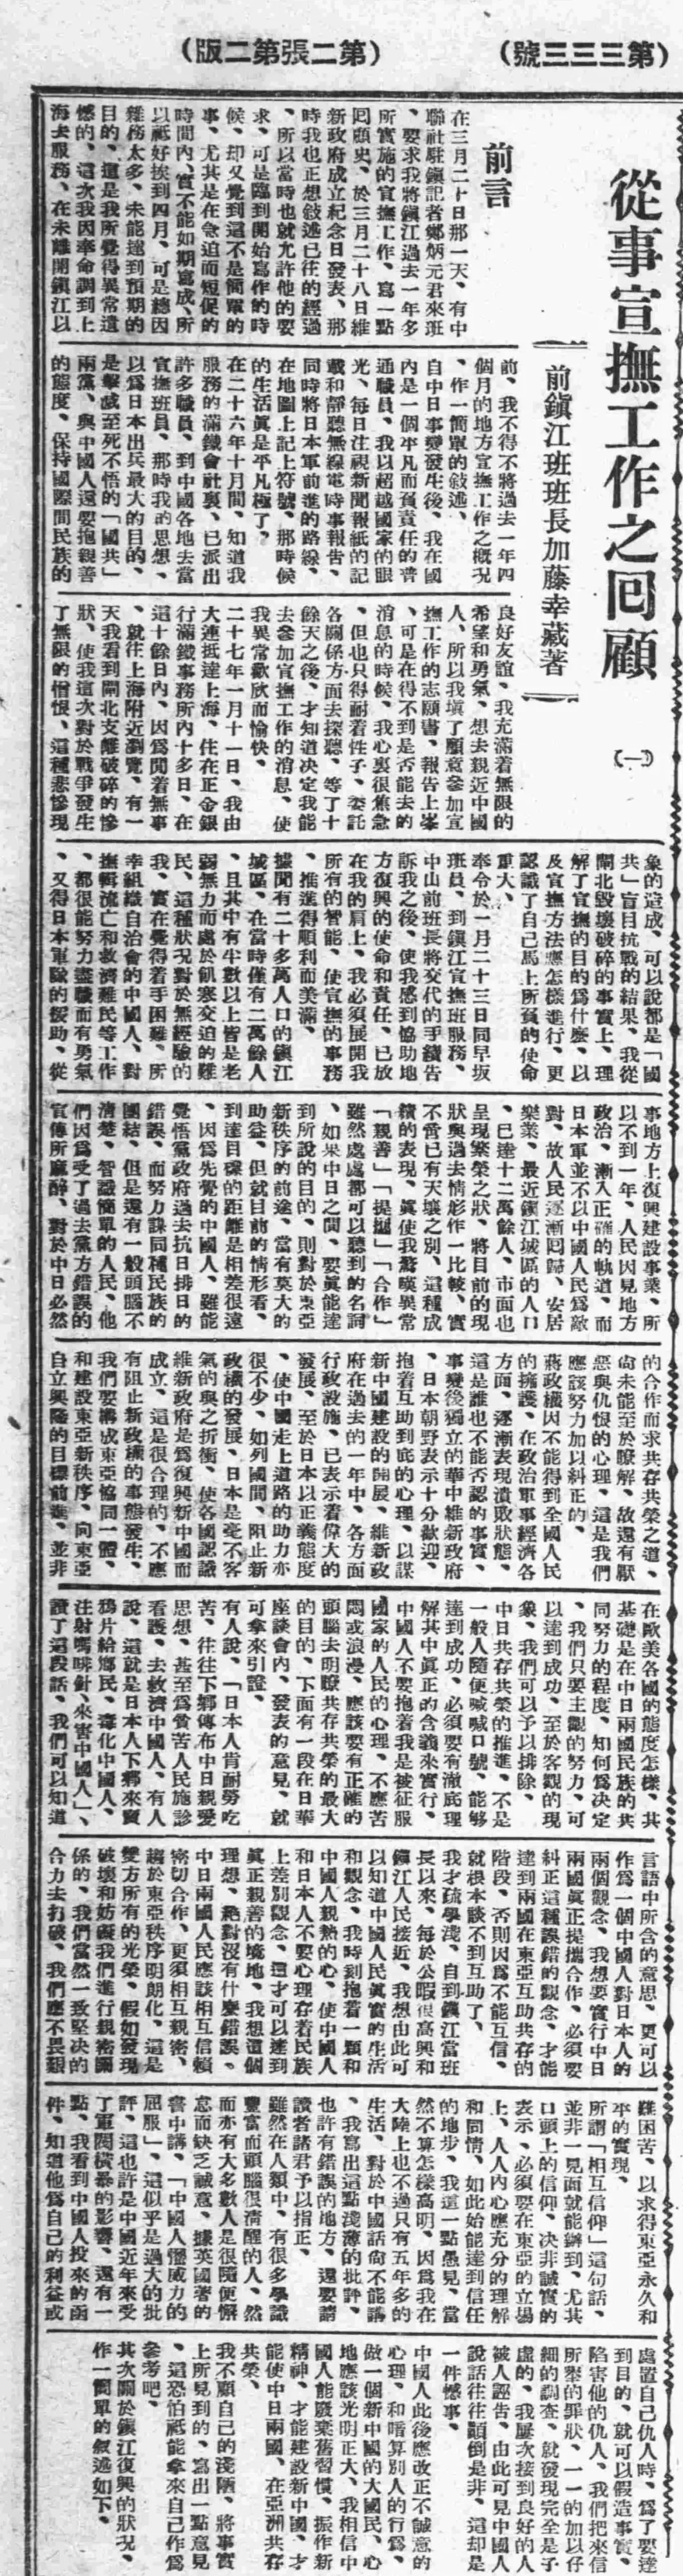 （第三三三號）
（第二張第二版）
從事宣撫工作之回顧
（一）
前鎭江班班長加藤幸藏著
前言
在三月二十日那一天、有中
聯社駐鎭記者鄭炳元君來班
、要求我將鎭江過去一年多
所實施的宣撫工作、寫一點
回顧史、於三月二十八日維
新政府成立紀念日發表、那
時我也正想敍述已往的經過
、所以當時也就允許他的要
求、可是臨到開始寫作的時
候、却又覺到這不是簡單的
事、尤其是在急迫而短促的
時間內、實不能如期寫成、所
以祗好挨到四月、可是總因
雜務太多、未能達到預期的
目的、這是我所覺得異常遺
憾的、這次我因奉命調到上
海去服務、在未離開鎭江以
前、我不得不將過去一年四
個月的地方宣撫工作之概況
、作一簡單的敍述、
自中日事變發生後、我在國
內是一個平凡而負責任的普
通職員、我以超越國家的眼
光、每日注視新聞報紙的記
載和靜聽無線電時事報告、
同時將日本軍前進的路線、
在地圖上記上符號、那時候
的生活眞是平凡極了、
在二十六年十月間、知道我
服務的滿鐵會社裏、已派出
許多職員、到中國各地去當
宣撫班員、那時我的思想、
以爲日本出兵最大的目的、
是擊滅至死不悟的「國共」
兩黨、與中國人還要抱親善
的態度、保持國際間民族的
良好友誼、我充滿着無限的
希望和勇氣、想去親近中國
人、所以我塡了願意參加宣
撫工作的志願書、報告上峯
、可是在得不到是否能去的
消息的時候、我心裏很焦急
、但也只得耐着性子、委託
各關係方面去探聽、等了十
餘天之後、才知道決定我能
去參加宣撫工作的消息、使
我異常歡欣而愉快、
二十七年一月十一日、我由
大連抵達上海、住在正金銀
行滿鐵事務所內十多日、在
這十餘日內、因爲閒着無事
、就往上海附近瀏覽、有一
天我看到閘北支離破碎的慘
狀、使我這次對於戰爭發生
了無限的憎恨、這種悲慘現
象的造成、可以說都是「國
共」盲目抗戰的結果、我從
閘北毀壞破碎的事實上、理
解了宣撫的目的爲什麼、以
及宣撫方法應怎樣進行、更
認識了自己馬上所負的使命
重大、
奉令於一月二十三日同早坂
班員、到鎭江宣撫班服務、
中山前班長將交代的手續告
訴我之後、使我感到協助地
方復興的使命和責任、已放
在我的肩上、我必須展開我
所有的智能、使宣撫的事務
、推進得順利而美滿、
據聞有二十多萬人口的鎭江
城區、在當時僅有二萬餘人
、且其中有半數以上皆是老
弱無力而處於飢寒交迫的難
民、這種狀況對於無經驗的
我、實在覺得着手困難、所
幸組織自治會的中國人、對
撫輯流亡和救濟難民等工作
、都很能努力盡職而有勇氣
、又得日本軍隊的援助、從
事地方上復興建設事業、所
以不到一年、人民因見地方
政治、漸入正確的軌道、而
日本軍並不以中國人民爲敵
對、故人民逐漸囘歸、安居
樂業、最近鎭江城區的人口
、已達十二萬餘人、市面也
呈現繁榮之狀、將目前的現
狀與過去情形作一比較、實
不啻已有天壤之別、這種成
績的表現、眞使我驚嘆異常
「親善」「提攜」「合作」
雖然處處都可以聽到的名詞
、如果中日之間、要眞能達
到所說的目的、則對於東亞
新秩序的前途、當有莫大的
助益、但就目前的情形看、
到達目標的距離是相差很遠
、因爲先覺的中國人、雖能
覺悟黨政府過去抗日排日的
錯誤、而努力謀同種民族的
團結、但是還有一般頭腦不
清楚、智識簡單的人民、他
們因爲受了過去黨方錯誤的
宣傳所麻醉、對於中日必然
的合作而求共存共榮之道、
尙未能至於瞭解、故還有厭
惡與仇恨的心理、這是我們
應該努力加以糾正的、
蔣政權因不能得到全國人民
的擁護、在政治軍事經濟各
方面、逐漸表現潰敗狀態、
這是誰也不能否認的事實、
事變後獨立的華中維新政府
、日本朝野表示十分歡迎、
抱着互助到底的心理、以謀
新中國建設的開展、維新政
府在過去的一年中、各方面
行政設施、已表示着偉大的
發展、至於日本以正義態度
、使中國走上道路的助力亦
很不少、如列國間、阻止新
政權的發展、日本是毫不客
氣的與之折衝、使各國認識
維新政府是爲復興新中國而
成立、這是很合理的、不應
有阻止新政權的事態發生、
我們要搆成東亞協同一體、
和建設東亞新秩序、向東亞
自立興隆的目標前進、並非
在歐美各國的態度怎樣、其
基礎是在中日兩國民族的共
同努力的程度、如何爲决定
、我們只要主觀的努力、可
以達到成功、至於客觀的現
象、我們可以予以排除、
中日共存共榮的推進、不是
一般人隨便喊喊口號、能夠
達到成功、必須要有澈底理
解其中眞正的含義來實行、
中國人不要抱着我是被征服
國家的人民的心理、不應苦
悶或浪漫、應該要有正確的
頭腦去明瞭共存共榮的最大
的目的、下面有一段在日華
座談會內、發表的意見、就
可拿來引證、
有人說、「日本人肯耐勞吃
苦、往往下鄉傳布中日親愛
思想、甚至爲貧苦人民施診
看護、去救濟中國人、有人
說、這就是日本人下鄉來賣
鴉片給鄉民、毒化中國人、
注射嗎啡針、來害中國人」、
讀了這段話、我們可以知道
言語中所含的意思、更可以
作爲一個中國人對日本人的
兩個觀念、我想要實行中日
兩國眞正提攜合作、必須要
糾正這種誤錯的觀念、才能
達到兩國在東亞互助共存的
階段、否則因爲不能互信、
就根本談不到互助了、
我才疏學淺、自到鎭江當班
長以來、每於公暇很高興和
鎭江人民接近、我想由此可
以知道中國人民眞實的生活
和觀念、我時刻抱着一顆和
中國人親熱的心、使中國人
和日本人不要心理存着民族
上差別觀念、這才可以達到
眞正親善的境地、我想這個
理想、絶對沒有什麼錯誤。
中日兩國人民應該相互信賴
密切合作、更須相互親密、
趨於東亞秩序明朗化、這是
雙方所有的光榮、假如發現
破壞和妨礙我們進行親密關
係的、我們當然一致堅決的
合力去打破、我們應不畏艱
難困苦、以求得東亞永久和
平的實現、
所謂「相互信仰」這句話、
並非一見面就能辦到、尤其
口頭上的信仰、決非誠實的
表示、必須要在東亞的立場
上、人人內心應充分的理解
和同情、如此始能達到信任
的地步、我這一點愚見、當
然不算怎樣高明、因爲我在
大陸上也不過只有五年多的
生活、對於中國話尙不能講
、我寫出這點淺薄的批評、
也許有錯誤的地方、還要請
讀者諸君予以指正、
雖然在人類中、有很多學識
豐富而頭腦很清醒的人、然
而亦有大多數人是很隨便懈
怠而缺乏誠意、據英國著的
書中講、「中國人懾威力的
屈服」、這似乎是過大的批
評、這也許是中國近年來受
了軍閥橫暴的影響、還有一
點、我看到中國人投來的函
件、知道他爲自己的利益或
處置自己仇人時、爲了要達
到目的、就可以假造事實、
陷害他的仇人、我們把來信
所舉的罪狀、一一的加以仔
細的調查、就發現完全是子
虛的、我屢次接到良好的人
被人誣告、由此可見中國人
說話往往顚倒是非、這却是
一件憾事、
中國人此後應改正不誠意的
心理、和暗算別人的行爲、
做一個新中國的大國民、心
地應該光明正大、我相信中
國人能廢棄舊習慣、振作新
精神、才能建設新中國、才
能使中日兩國、在亞洲共存
共榮、
我不顧自己的淺陋、將事實
上所見到的、寫出一點意見
、這恐怕祗能拿來自己作爲
參考吧、
其次關於鎭江復興的狀況、
作一簡單的敍述如下、